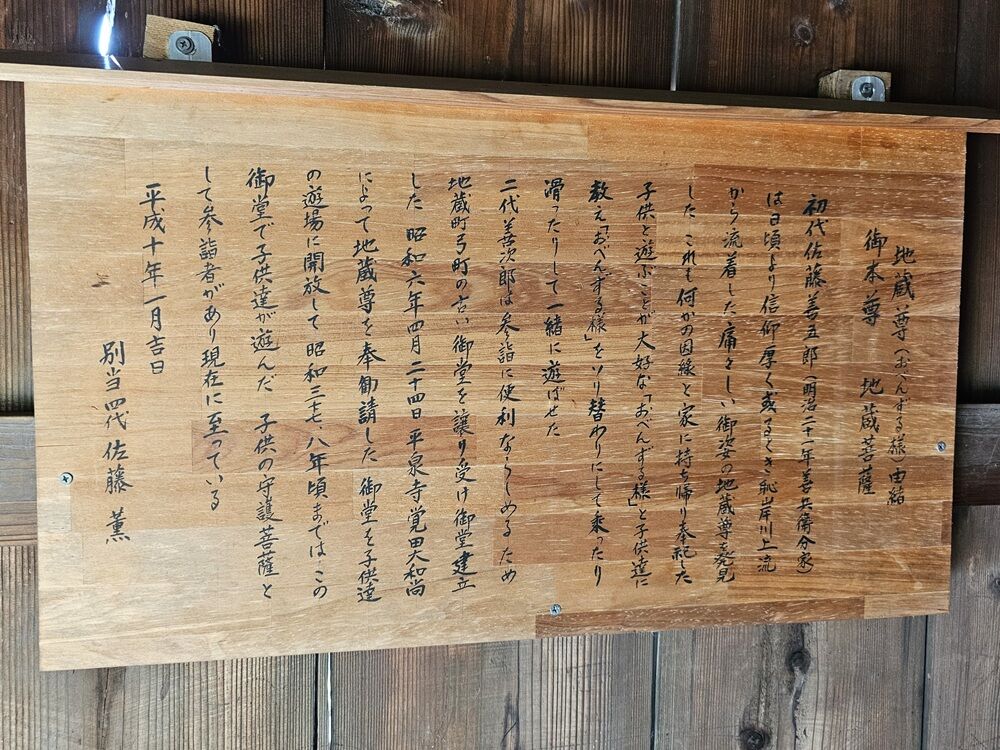 地蔵尊(おべんずる様)由緒
御本尊 地蔵菩薩
初代佐藤善五郎(明治二十一年善兵衛分家)
は日頃より信仰厚く或るとき恥岸川上流
から流着した痛々しい御姿の地蔵尊を発見
した これも何かの因縁と家に持ち帰り奉祀した
子供と遊ぶことが大好な「おべんずる様」と子供達に
教え「おべんずる様」をソリ替わりにして乗ったり
滑ったりして一緒に遊ばせた
二代善次郎は参詣に便利ならしめるため
地蔵町弓町の古い御堂を譲り受け御堂建立
した 昭和六年四月二十四日平泉寺覚田大和尚
によって地蔵尊を奉勧請した 御堂を子供達
の遊場に開放して 昭和三十七、八年頃までは、この
御堂で子供達が遊んだ 子供の守護菩薩と
して参詣者があり現在に至っている
平成十年一月吉日
別当四代 佐藤 薫